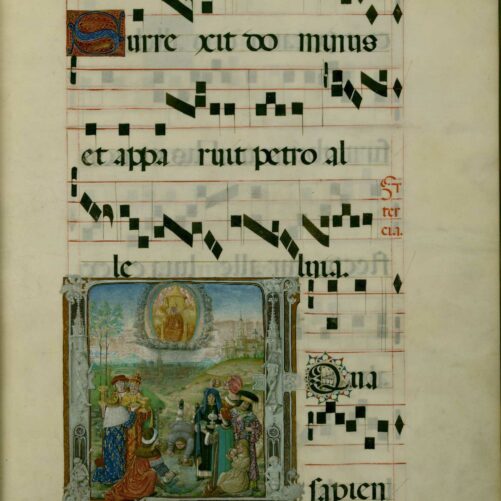 Surre xit do minus
et appa ruit petro al
le luia.
Aqua
sapien